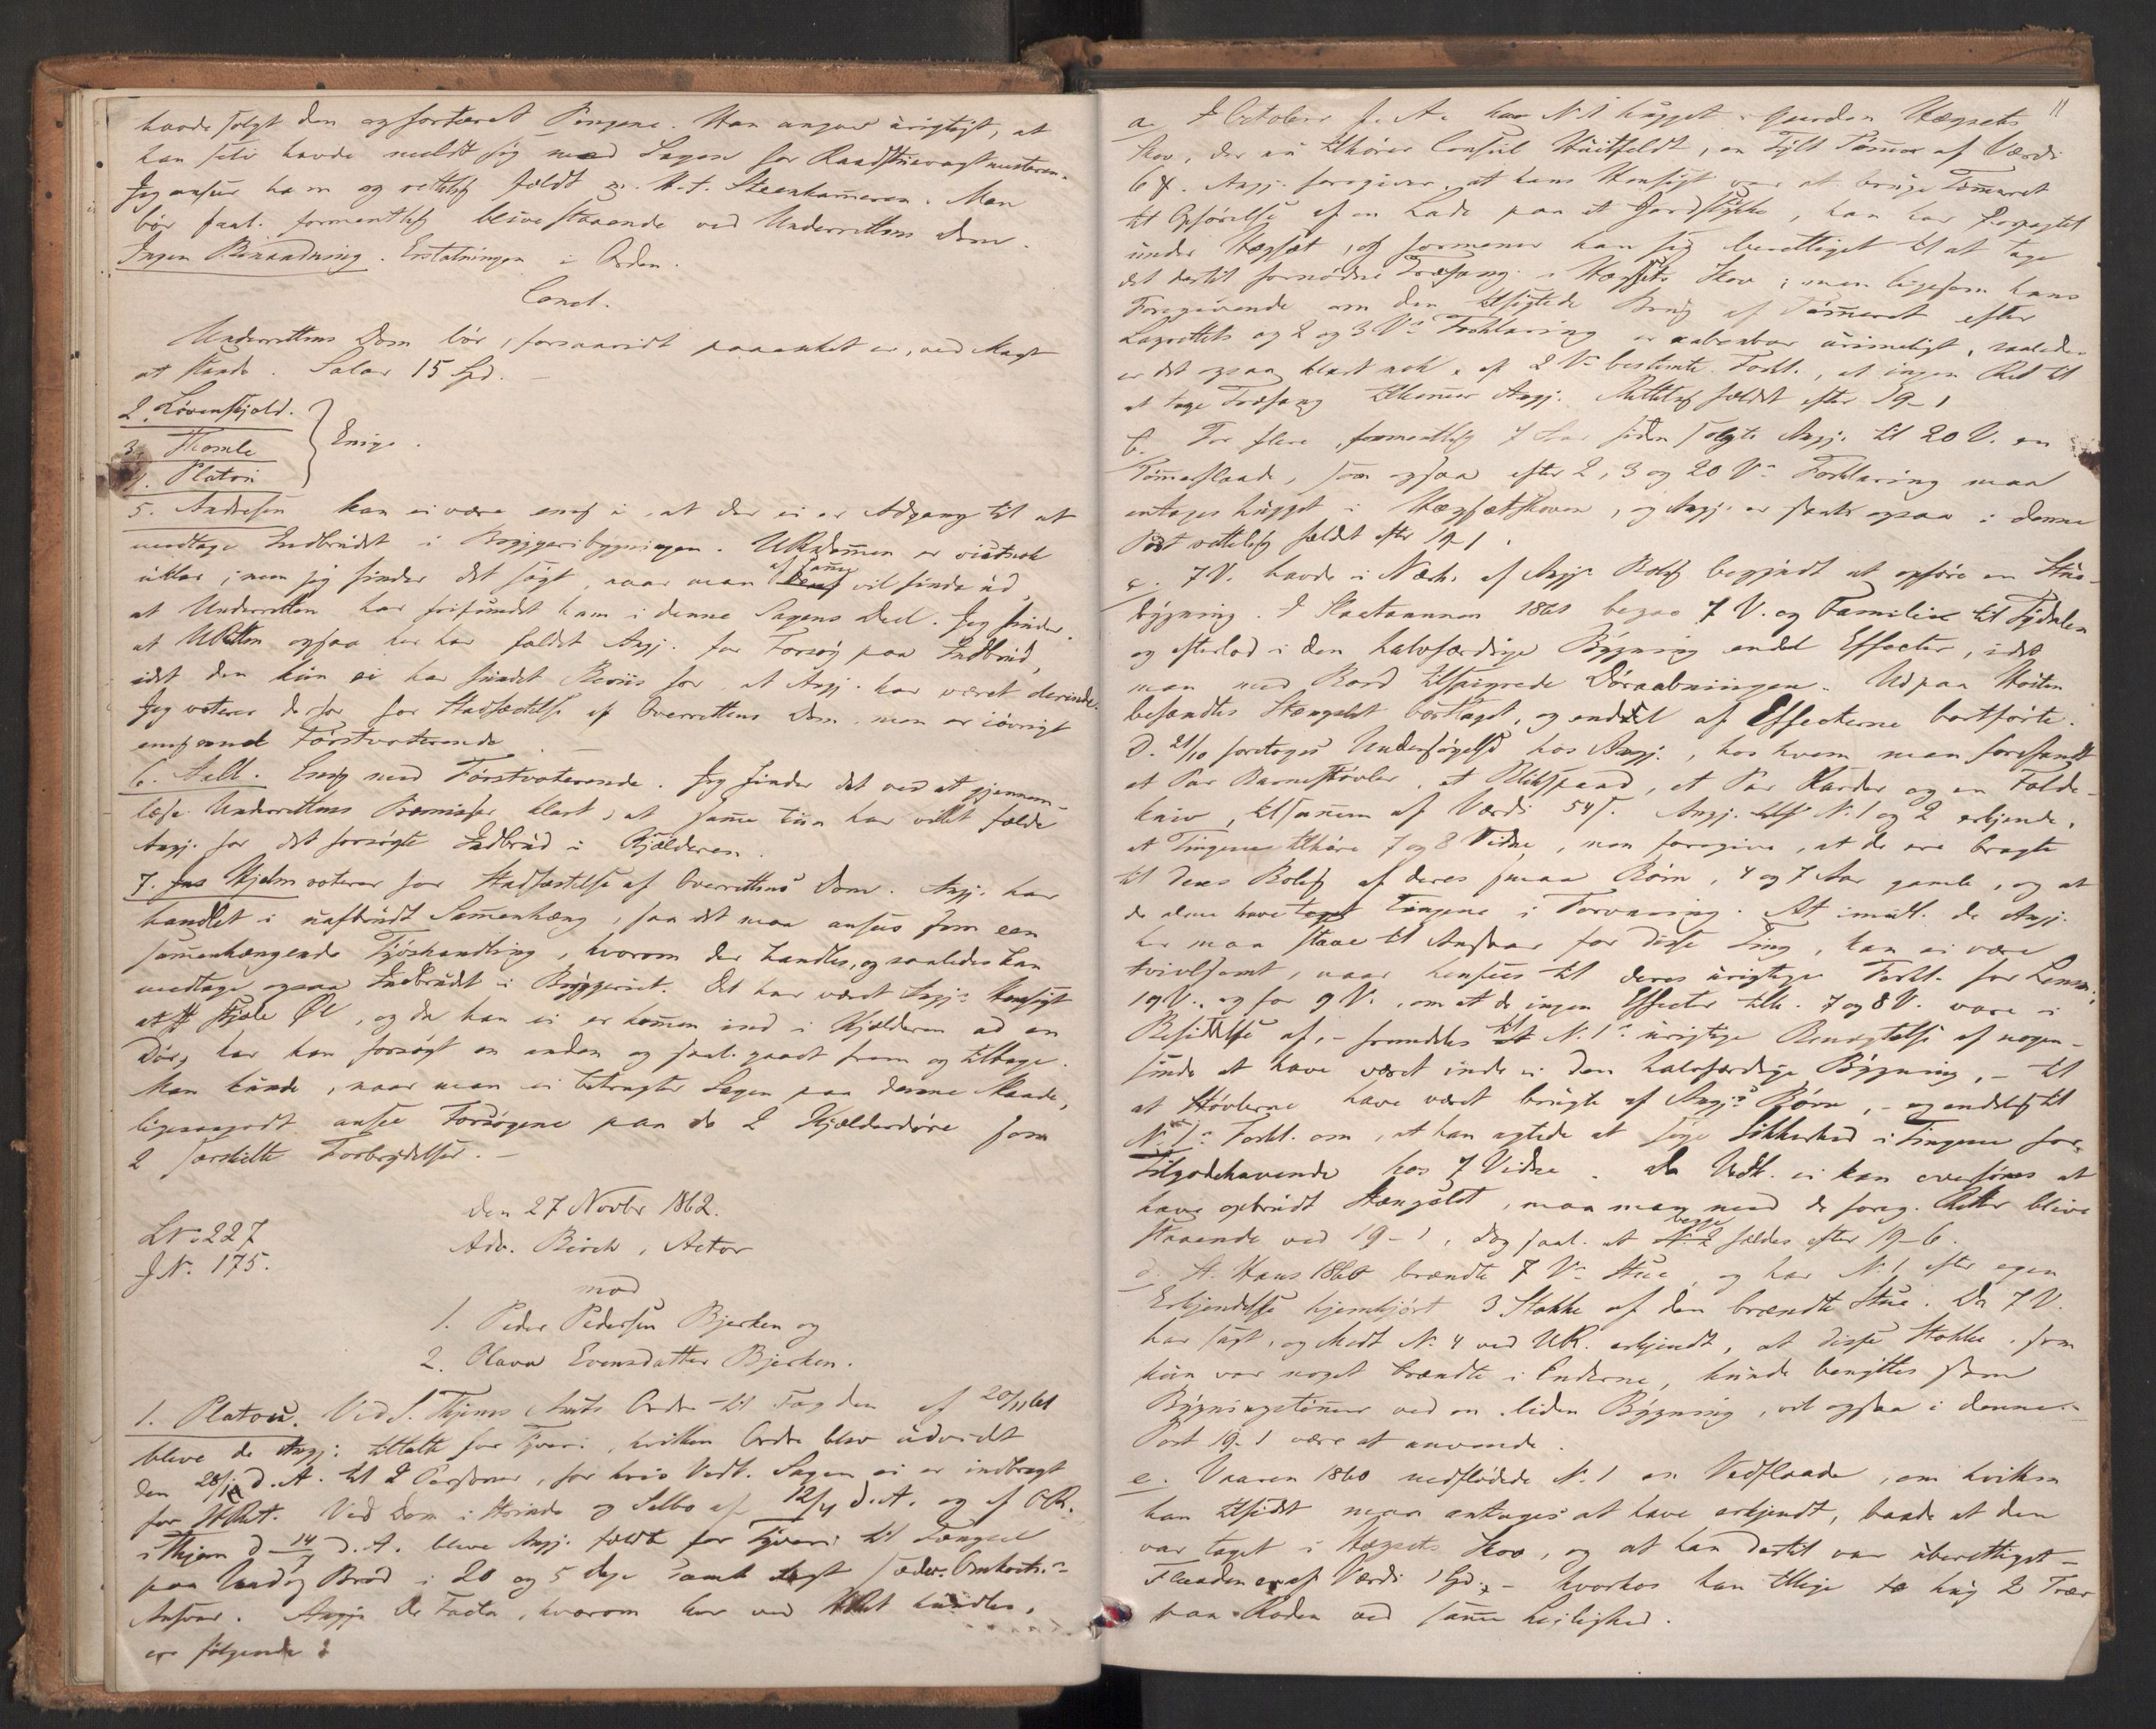 havde solgt den og fortæret Pengene. Han angav urigtigt, at
han selv havde meldt sig med Sagen for Raadstuevagtmesteren.
Jeg anseer ham og rettelig fældt m. H. t. Steenkameren. Man
bør saal. formentlig blive staaende ved Underrettens Dom.
Ingen Benaadning. Erstatningen i Orden.
Concl.
Underrettens Dom bør, forsaavidt paaanket er, ved Magt
at stande. Salær 15 Spd. –
2. Løvenskjold.
3. Thomle
4. Platou
Enige.
5. Andresen kan ei være enig i, at der ei er Adgang til at
medtage Indbrudet i Bryggeribygningen. URdommen er vistnok
uklar; men jeg finder det søgt, naar man af samme vil finde ud,
at Underretten har frifundet ham i denne Sagens Deel. Jeg finder,
at URetten ogsaa her har fældet Angj. for Forsøg paa Indbrud,
idet den kun ei har fundet Beviis for, at Angj. har været derinde.
Jeg voterer derfor for Stadfæstelse af Overrettens Dom, men er iøvrigt
enig med Førstvoterende
6. Aall. Enig med Førstvoterende. Jeg finder det ved at gjennem-
læse Underrettens Præmisser klart, at samme kun har villet fælde
Angj. for det forsøgte Indbrud i Kjælderen.
7. Hjelm voterer for Stadfæstelse af Overrettens Dom. Angj. har
handlet i uafbrudt Sammenhæng, saa det maa ansees som een
sammenhængende Tyvshandling, hvorom der handles, og saaledes kan
medtage ogsaa Indbrudt i Bryggeriet. Det har været Angj.s Hensigt
at stjæle Øl, og da han ei er kommen ind i Kjælderen ad en
Dør, har han forsøgt en anden og saal. gaaet frem og tilbage.
Man kunde, naar man ei betragter Sagen paa denne Maade,
ligesaagodt ansee Forsøgene paa de 2 Kjælderdøre som
2 særskilte Forbrydelser. –
Den 27 Novbr 1862.
LNo 227
JNo. 175.
Adv. Birch, Actor
mod
1. Peder Pedersen Bjerken og
2. Olava Evensdatter Bjerken.
1. Platou. Ved S. Thjems Amts Ordre til Fogden af 20/11 61
bleve de Angj: tiltalte for Tyveri, hvilken Ordre blev udvidet
den 28/1 d. A. til 2 Personer, for hvis Vedk. Sagen ei er indbragt
for HRet. Ved Dom i Strinde og Selbo af 12/4 d. A. og af OR.
i Thjem d 14/7 d. A. bleve Angj. fældte for Tyveri til Fængsel
paa Vand og Brød i 20 og 5 Dage samt sædv. Omkostn.s
Ansvar. De Facta, hvorom her ved HRet handles,
ere følgende:
11
a. I October f. A. har No. 1 hugget i Gaarden Hegsets
Skov, der nu tilhører Consul Huitfeldt, en Tylt Tømmer af Værdi
6 . Angj. foregiver, at hans Hensigt var at bruge Tømmeret
til Opførelse af en Lade paa et Jordstykke, han har forpagtet
under Hegset, og formener han sig berettiget til at tage
det dertil fornødne Træfang i Hegsets Skov; men ligesom hans
Foregivende om den tilsigtede Brug af Tømmeret efter
Lagrettets og 2 og 3 Vs Forklaring er aabenbar urimeligt, saaledes
er det ogsaa klart nok, af 2 Vs bestemte Forkl., at ingen Ret til
at tage Træfang tilkommer Angj. Rettelig fældt efter 19–1
b. For flere, formentlig 7 Aar siden solgte Angj. til 20 V. en
Tømmerflaade, som ogsaa efter 2, 3 og 20 Vs Forklaring maa
antages hugget i Hegsetskoven, og Angj. er saal. ogsaa i denne
Post rettelig fældt efter 19–1.
c. 7 V. havde i Nærh. af Angjs Bolig begyndt at opføre en Stue-
bygning. I Slaataannen 1861 begav 7 V. og Familie sig til Tydalen
og efterlod i den halvfærdige Bygning endel Effecter, idet
man med Bord tilspigrede Døraabningen. Udpaa Høsten
befandtes Stængslet borttaget, og endel af Effecterne bortførte.
D. 21/10 foretoges Undersøgelse hos Angj., hos hvem man forefandt
et Par Barnestøvler, et Blikspand, et Par Karder og en Folde-
kniv, tilsammen af Værdi 54 s. Angj. No. 1 og 2 erkjende,
at Tingene tilhøre 7 og 8 Vidne, men foregive, at de ere bragte
til deres Bolig af deres smaa Børn, 4 og 7 Aar gamle, og at
de alene have taget Tingene i Forvaring. At imidl. de Angj.
her maa staae til Ansvar for disse Ting, kan ei være
tvivlsomt, naar hensees til deres urigtige Forkl. for Lensm.,
19 V., og for 9 V., om at de ingen Effecter tilh. 7 og 8 V. vare i
Besiddelse af, – fremdeles til No. 1s urigtige Benegtelse af nogen-
sinde at have været inde i den halvfærdige Bygning, – til
at Støvlerne have været brugte af Angj.s Børn, – og endelig til
No. 1s Forkl. om, at han agtede at søge Sikkerhed i Tingene for
Tilgodehavende hos 7 Vidne. Da Vedk. ei kan overføres at
have opbrudt Stængslet, maa man med de foreg. Retter blive
staaende ved 19–1, dog saal. at begge fældes efter 19–6.
d. St. Hans 1860 brændte 7 Vs Stue, og har No. 1 efter egen
Erkjendelse hjemkjørt 3 Stokke af den brændte Stue. Da 7 V.
har sagt, og Medt. No. 4 ved UR. erkjendt, at disse Stokke, som
kun var noget brændte i Enderne, kunde benyttes som
Bygningstømmer ved en liden Bygning, vil ogsaa i denne
Post 19–1 være at anvende.
e. Vaaren 1860 nedflødede No. 1 en Vedflaade, om hvilken
han tilsidst maa antages at have erkjendt, baade at den
var taget i Hegsets Skov, og at han dertil var uberettiget –
Flaaden er af Værdi 1 Spd. – hvorhos han tillige hug 2 Trær
paa Roden ved samme Leilighed.